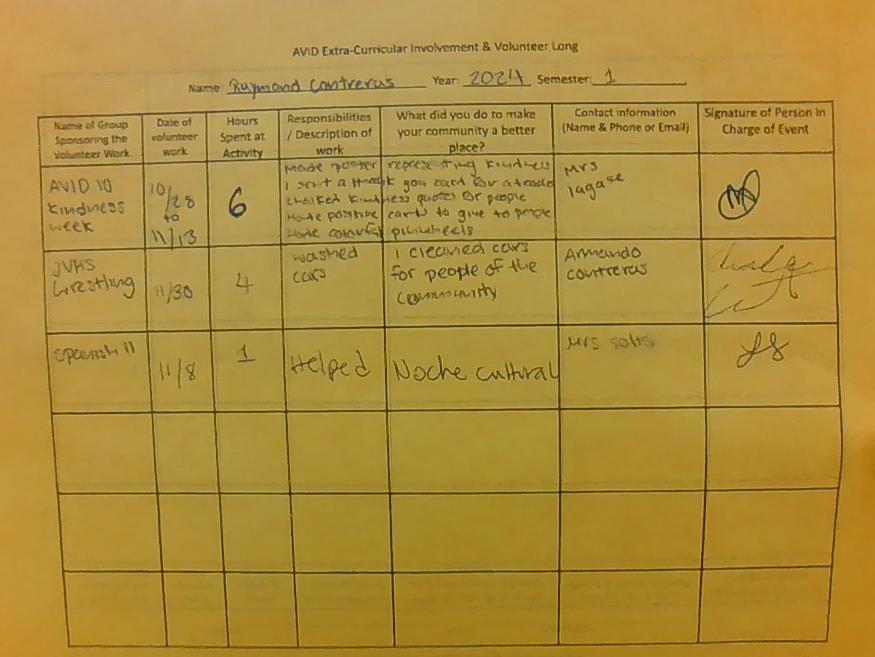 AVID Extra-Curricular Involvement & Volunteer Long
Name: Raymond Contreras Year: 2024 Semester: 1
Name of Group Sponsoring the Volunteer Work
Date of volunteer work
Hours Spent at Activity
Responsibilities / Description of work
What did you do to make your community a better place?
Contact information (Name & Phone or Email)
Signature of Person in Charge of Event
AVID 10
Kindness
week
10/28
to
11/13
6
Made poster representing kindness
I sent a thank you card for a teacher
Chalked kindness quotes for people
Made positive cards to give to people
Made colourful pinwheels
Mrs
lagase
JVHS
Wrestling
11/30
4
washed
cars
I cleaned cars
for people of the
community
Armando
contreras
Spanish 11
11/8
1
Helped
Noche cultural
Mrs solis